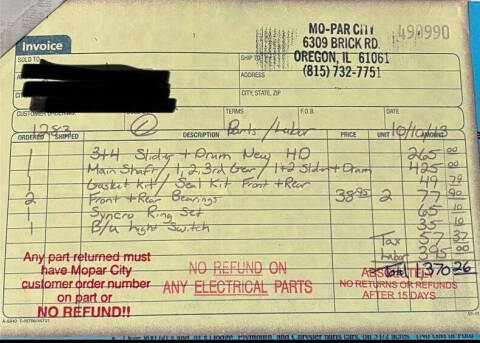 MO-PAR CITY
6309 BRICK RD.
OREGON, IL 61061
(815) 732-7751
Invoice
SOLD TO
SHIP TO
ADDRESS
ADDRESS
CITY, STATE, ZIP
CUSTOMER ORDER NO. TERMS F.O.B. DATE
1283 Parts/Labor 10/10/13
ORDERED SHIPPED DESCRIPTION PRICE UNIT AMOUNT
1 3+4 Slider + Drum New HD 265 00
1 Main Shaft / 1, 2, 3rd Gear / 1+2 Slder + Drum 425 00
1 Gasket Kit / Seal Kit Front + Rear 49 79
2 Front + Rear Bearings 38 95 2 77 90
1 Syncro Ring Set 65 10
1 B/u light Switch 35 10
Tax 57 37
Labor 395 00
Total 1370 26
Any part returned must
have Mopar City
customer order number
on part or
NO REFUND!!
NO REFUND ON
ANY ELECTRICAL PARTS
ABSOLUTELY
NO RETURNS OR REFUNDS
AFTER 15 DAYS